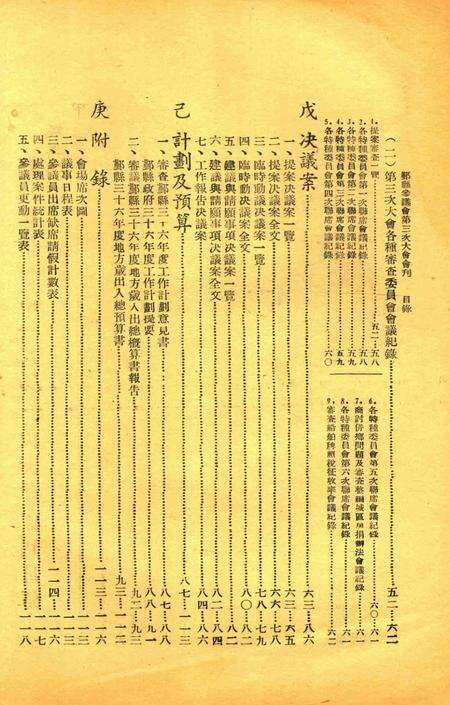 鄞縣參議會第三次大會會刊 目錄
(二)第三次大會各種審查委員會會議紀錄……五二—六二
1.提案審查一覽……五二—五八
2.各特種委員會第一次聯席會議紀錄……五八
3.各特種委員會第二次聯席會議紀錄……五九
4.各特種委員會第三次聯席會議紀錄……五九
5.各特種委員會第四次聯席會議紀錄……六〇
6.各特種委員會第五次聯席會議紀錄……六〇—六一
7.商討併鄉問題及審查整理城區房捐辦法會議紀錄……六一
8.各特種委員會第六次聯席會議紀錄……六一
9.審查船舶牌照稅征收率會議紀錄……六二
戊 決議案……六三—八六
一、提案決議案一覽……六三—六五
二、提案決議案全文……六六—七八
三、臨時動議決議案一覽……七八—七九
四、臨時動議決議案全文……八〇—八二
五、建議與請願事項決議案一覽……八二
六、建議與請願事項決議案全文……八二—八四
七、工作報告決議案……八四—八六
己 計劃及預算……八七—一一三
一、審查鄞縣三十六年度工作計劃意見書……八七—八八
鄞縣政府三十六年度工作計劃提要……八八—九一
二、審議鄞縣三十六年度地方歲入出總概算書報告……九二—九三
鄞縣三十六年度地方歲出入總預算書……九三—一一二
庚 附錄……一一三—一一六
一、會場席次圖……一一三
二、議事日程表……一一三
三、參議員出席缺席請假計數表……一一四—一一六
四、處理案件統計表……一一七
五、參議員更動一覽表……一一八